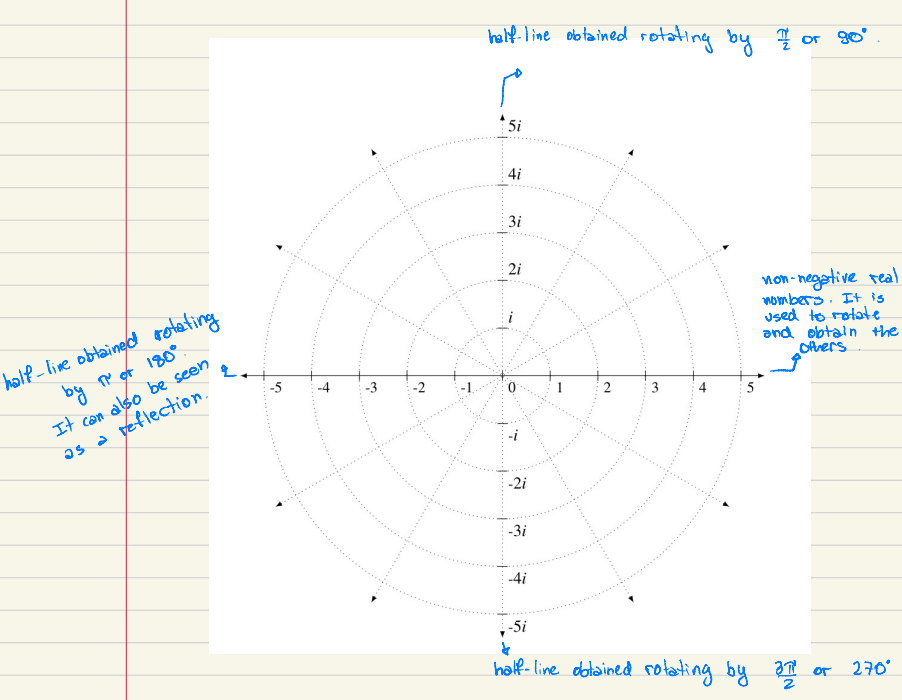 half-line obtained rotating by π/2 or 90°.
5i
4i
3i
2i
i
non-negative real
numbers. It is
used to rotate
and obtain the
others
half-line obtained rotating
by π or 180°.
It can also be seen
as a reflection.
-5 -4 -3 -2 -1 0 1 2 3 4 5
-i
-2i
-3i
-4i
-5i
half-line obtained rotating by 3π/2 or 270°